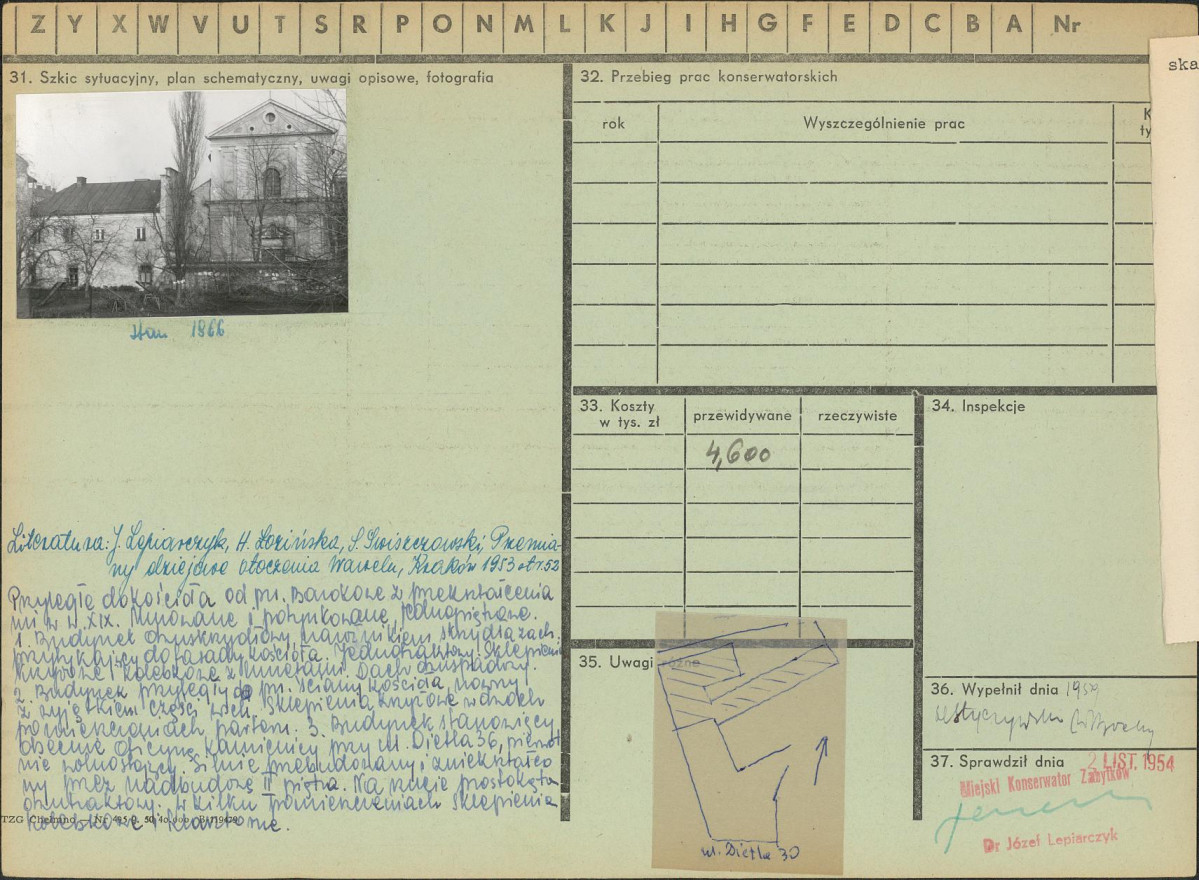 Z Y X W V U T S R P O N M L K J I H G F E D C B A Nr
31. Szkic sytuacyjny, plan schematyczny, uwagi opisowe, fotografia
Stan 1866
Literatura: J. Lepiarczyk, H. Łozińska, S. Świszczowski, Przemia-
ny dziejowe otoczenia Wawelu, Kraków 1953 str. 52
Przyległe do kościoła od pn. Barokowe z przekształcenia
mi z w. XIX. Murowane i potynkowane, jednopiętrowe.
1. Budynek dwuskrzydłowy, narożnikiem skrzydła zach.
przytykający do fasady kościoła. Jednotraktowy. Sklepienia
krzyżowe i kolebkowe z lunetami. Dach dwuspadowy.
2. Budynek przyległy do pn. ściany kościoła, nowszy
z wyjątkiem części wsch. Sklepienia krzyżowe w dwóch
pomieszczeniach parteru. 3. Budynek stanowiący
obecnie oficynę kamienicy przy ul. Dietla 36, pierwot
nie wolnostojący. Silnie przebudowany i zniekształco
ny przez nadbudowę II piętra. Na rzucie prostokąta
dwutraktowy. W kilku pomieszczeniach sklepienia
kolebkowe i klasztorne.
32. Przebieg prac konserwatorskich
rok
Wyszczególnienie prac
K
ty
ska
33. Koszty
w tys. zł
przewidywane
rzeczywiste
4,600
34. Inspekcje
35. Uwagi różne
ul. Dietla 30
36. Wypełnił dnia 1959
37. Sprawdził dnia 2 LIST. 1954
Miejski Konserwator Zabytków
Dr Józef Lepiarczyk